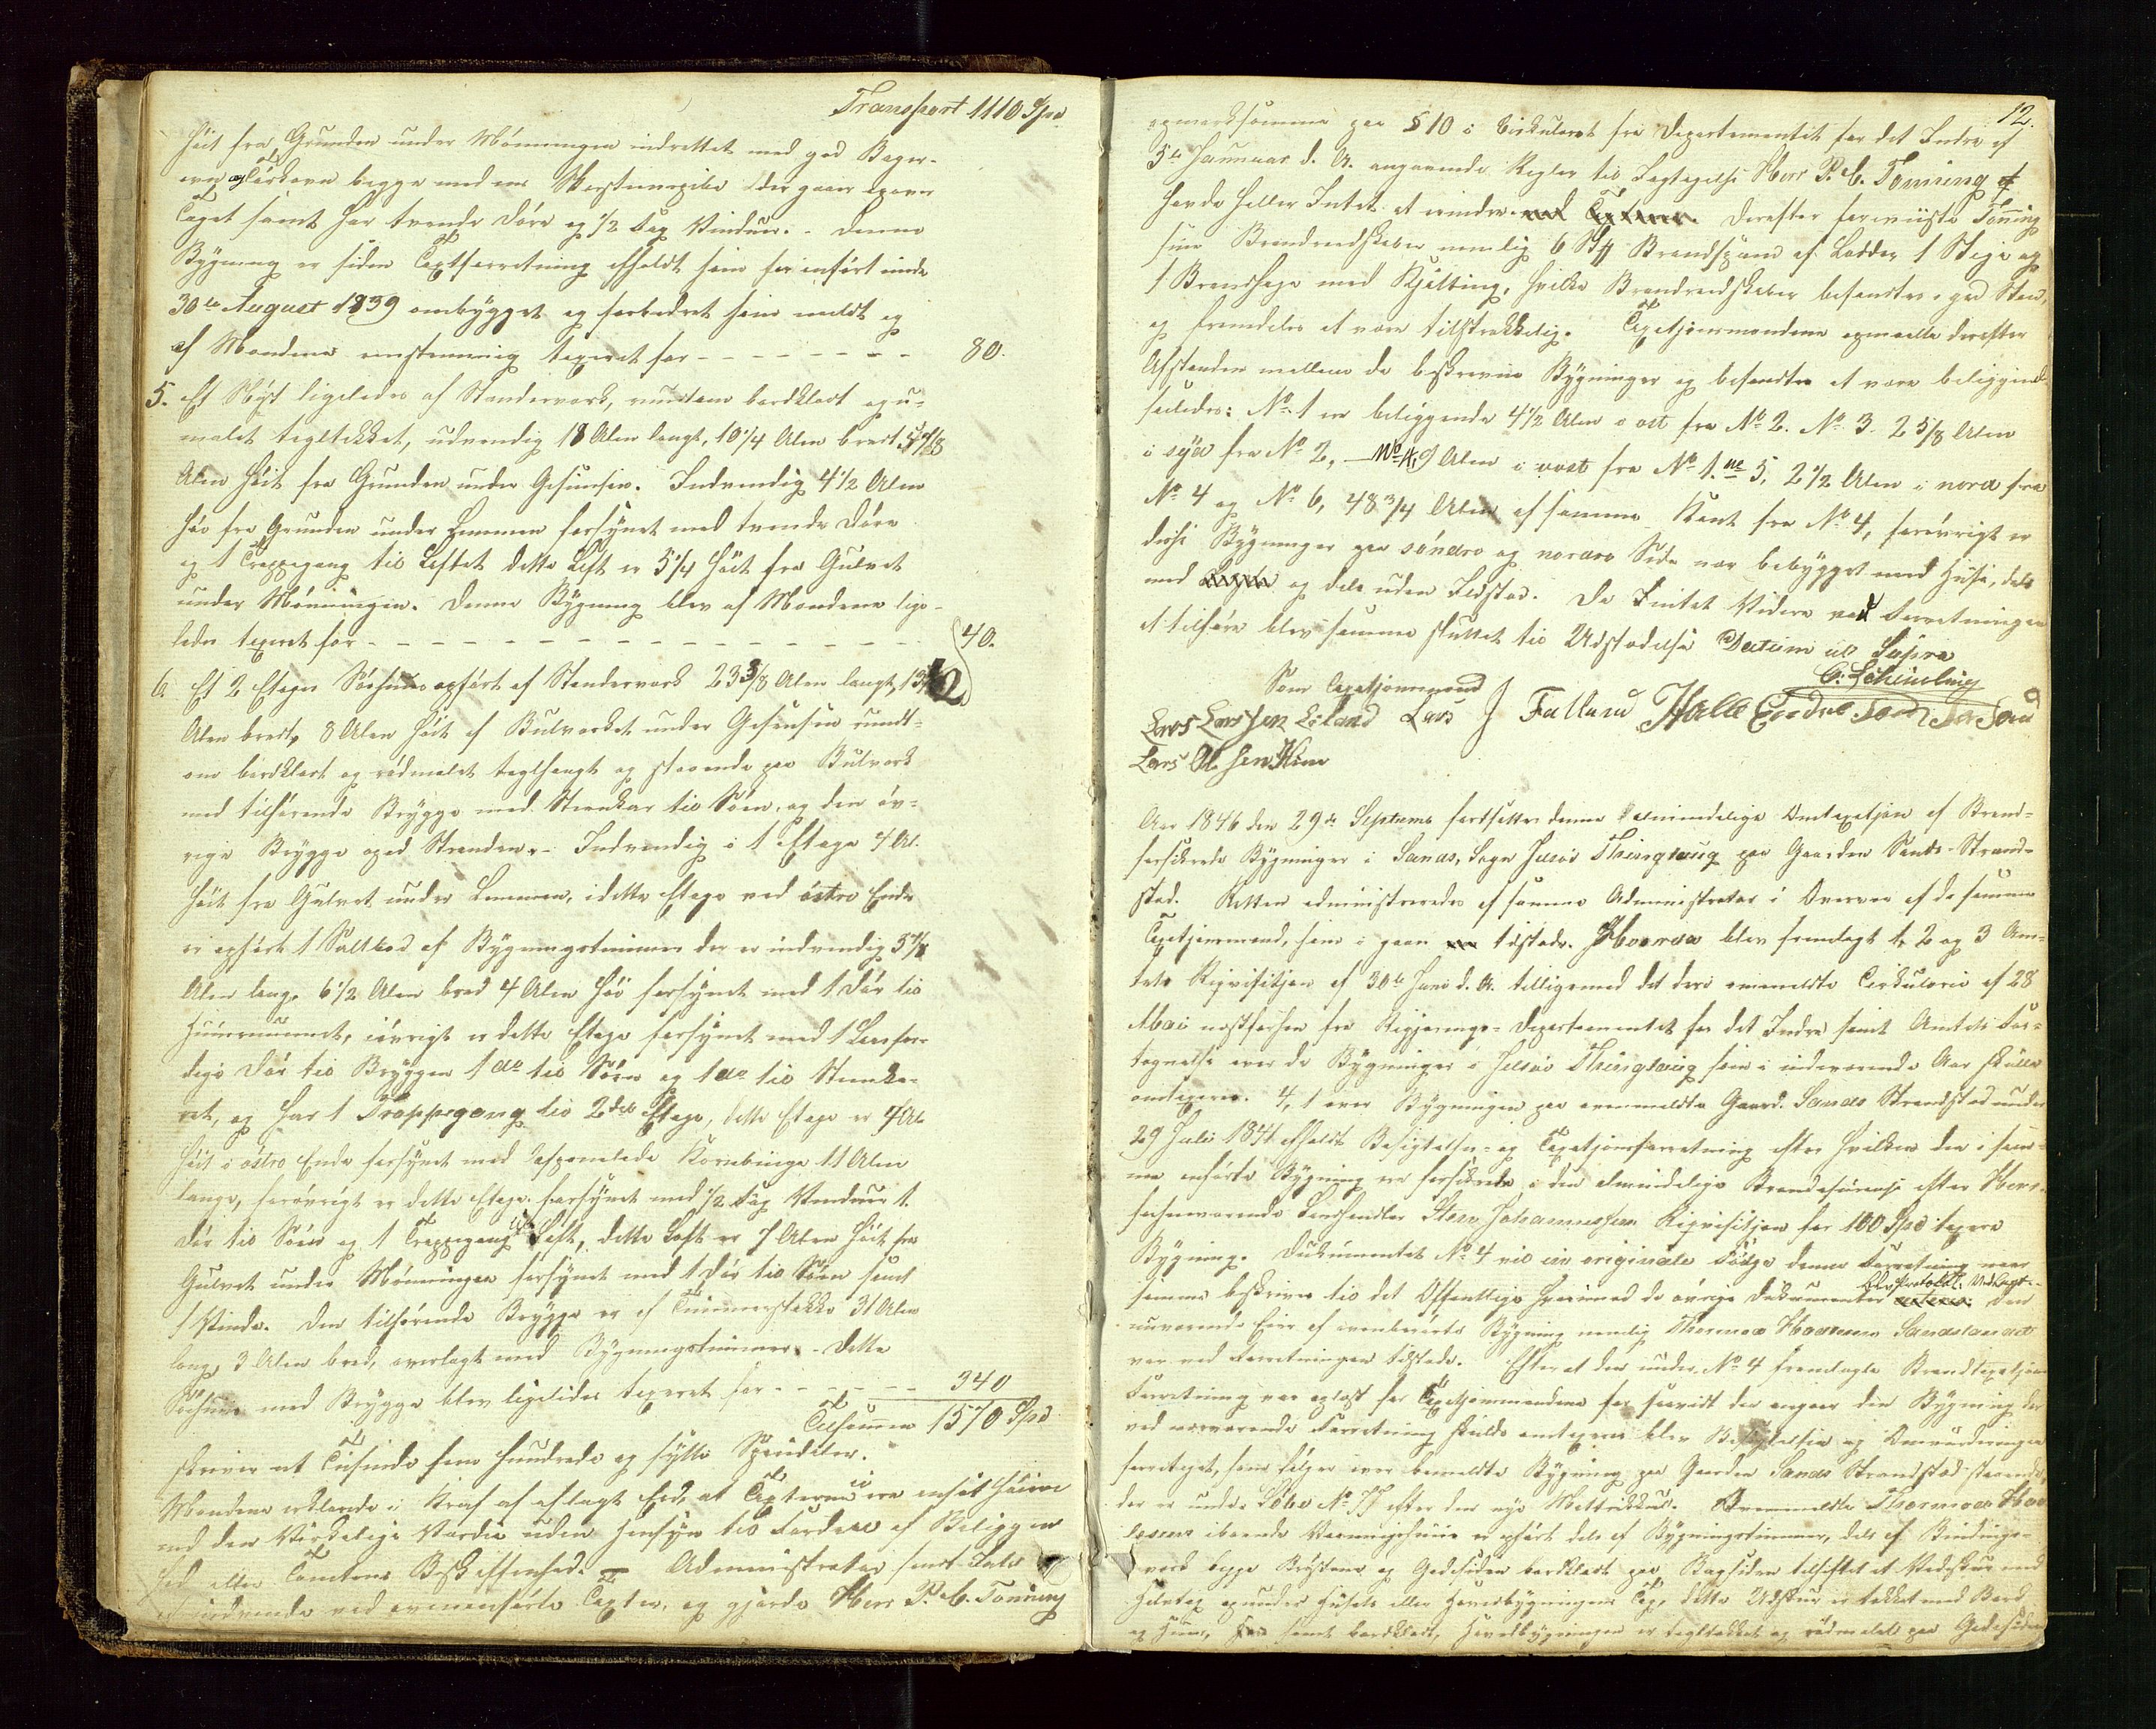 Transport 1110 Spd
høit fra Grunden under Mønningen indrettet med god Bager-
ovn og Tørkovn begge med en Skorsteenspibe der gaaer over
Taget samt har tvende Døre og 1/2 Fag Vinduer. Denne
Bygning er siden Taxtforretning afholdt som er anført inde
30te August 1839 ombygget og forbedret som meldt og
af Mændene eenstemmig taxeret for - - - - - - - - 80.
5. Et Skyt ligeledes af Standerværk, rundtom bordklædt og u-
malet tegltækket, udvendig 18 Alen langt, 10 1/4 Alen bredt
Alen høit fra Grunden under Gesimsen. Indvendig 4 1/2 Alen
høi fra Grunden under Lemmen forsynet med tvende Døre
og 1 Trappegang til Loftet dette Loft er 5 1/4 høit fra Gulvet
under Mønningen. Denne Bygning blev af Mændene lige-
ledes taxeret for - - - - - - - - - - - - - 40.
6. Et 2 Etages Søehuus opført af Standerværk 23 3/8 Alen langt,
Alen bredt, 8 Alen høit af Bulværket under Gesimsen rundt-
om bordklædt og rødmalet teglhængt og staaende paa Bulværk
med tilhørende Brygge med Steenkar til Søen, og den øv-
rige Brygge oped Stranden. Indvendig i 1 Etage 4 Al.
høit fra Gulvet under Lemmen, i dette Etage ved østre Ende
er opført 1 Saltbod af Bygningstømmer der er indvendig
Alen lang, 6 1/2 Alen bred 4 Alen høi forsynet med 1 Dør til
Huusrummet, iøvrigt er dette Etage forsynet med 1
Dør til Bryggen 1 do til Søen og 1 do til Steenka-
ret, og har 1 Trappegang til 2det Etage, dette Etage er 4 Al.
høit i østre Ende forsynet med Kornbinge 11 Alen
lange, forøvrigt er dette Etage forsynet med 1/2 Fag Vinduer 1.
Dør til Søen og 1 Trappegang til Loft, dette Loft er 7 Alen høit fra
Gulvet under Mønningen forsynet med 1 Dør til Søen samt
1 Vinde. Den tilhørende Brygge er af Tømmerstokke 31 Alen
lang, 3 Alen bred, overlagt med Bygningstømmer. Dette
Søehuus med Brygge blev ligeledes taxeret for - - - - - - 340
Tilsammen 1570 Spd
skriver et Tusinde fem Hundrede og sytti Speciedaler.
Mændene erklærede i Kraft af aflagt Eed, at Taxterne ei ere ansat høiere
end den virkelige Værdie uden Hensyn til Fordeel af Beliggen
hed eller Tomtens Beskaffenhed. Administrator fandt Intet
at indvende ved ovenanførte Taxter, og gjorde Herr P. C. Tonning
12.
opmærksomme paa § 10 i Cirkulæret fra Departementet for det Indre af
5te Januar d. A. angaaende Regler til Iagttagelse Herr P. C. Tonning
havde heller Intet at erindre. Derefter foreviiste Tonning
sine Brandredskaber nemlig 6 Stk Brandspand af Læder, 1 Stige og
1 Brandhage med Kjætting, hvilke Brandredskaber befandtes i god Stand,
og fremdeles at være tilstrækkelig. Taxationsmændene opmaalte derefter
Afstanden mellem de beskrevne Bygninger og befandtes at være beliggende
saaledes: No. 1 er beliggende 4 1/2 Alen i ost fra No 2. No. 3. 2 5/8 Alen
i syd fra No 2, No 4, 9 Alen i vest fra No 1. No 5, 2 1/2 Alen i nord fra
No 4 og No 6, 48 3/4 Alen af samme Kant fra No 4, forøvrigt er
disse Bygninger paa søndre og nordre Side nær bebygget med Huse, dels
med og dels uden Ildsted. Da Intet Videre ved Forretningen
at tilføre blev samme sluttet til Udstædelse Datum ut Supra
C: Scheinbrug
Som Taxationsmænd
Lars Larssen Eiland Lars J Falland Halle Endresen
Lars Olsen Hiim
Aar 1846 den 29de Septemb fortsattes denne almindelige Omtaxation af Brand-
forsikrede Bygninger i Sands Sogn Jelsøe Thinglaug paa Gaarden Sands Strand-
sted. Retten administreredes af samme Administrator i Overvær af de samme
Taxationsmænd, som i gaar tilstede. Hvorda blev fremlagt 1, 2 og 3 Am-
tets Reqvisition af 30te Juni d. A. tilligemed det deri ommeldte Cirkulære af 28
Mai næstforhen fra Regjerings-Departementet for det Indre samt Amtets For-
tegnelse over de Bygninger i Jelsøe Thinglaug som i indeværende Aar skulle
omtaxeres. 4, 1 over Bygningen paa ovenmeldte Gaard Sands Strandsted under
29 Juli 1841 afholdt Besigtelses- og Taxationsforretning efter hvilken den i sam-
me anførte Bygning er forsikrede i den almindelige Brandassurance efter Herr
forhenværende Landhandler Sten Johannessens Reqvisition for 100 Spd taxere
Bygning. Dokumentet No 4 vil in originale følge denne Forretning naar
samme beskrives til det Offentlige hvorimod de øvrige Dokumenter Den
nuværende Eier af ovenberørte Bygning nemlig Thormod Sandsland
var ved Forretningen tilstede. Efter at den under No 4 fremlagte Brandtaxations
Forretning var oplæst for Taxationsmændene for saavidt der angaaer den Bygning der
ved nærværende Forretning skulde omtaxeres blev Besigtelsen og Omvurderingen
foretaget, som følger over bemeldte Bygning paa Gaarden Sands Strandsted staaende
der er under Løbe No 77 efter den nye Matrikkul. Ovenmeldte Thormod
iboende Vaaningshuus er opført dels af Bygningstømmer, dels af Bindings-
værk begge Røstene og Gadesiden bordklædt paa Bagsiden tilheftet et Vedskur med
Halvtag opunder Husets eller Hovedbygningens Tag, dette Udskur er tækket med Bord
og samt bordklædt, Hovedbygningen er tegltækket og rødmalet paa Gadesiden